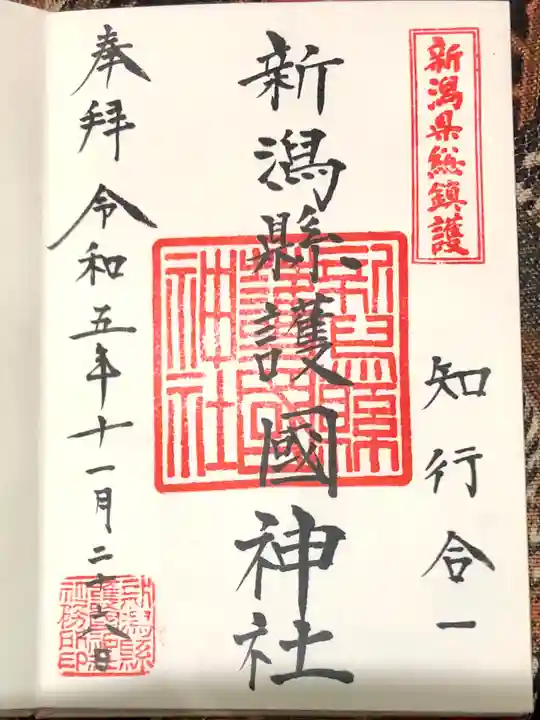 新潟県総鎮護
知行合一
新潟縣護國神社
奉拝 令和五年十一月二十六日
新潟縣護國神社
新潟縣護國神社社務所印